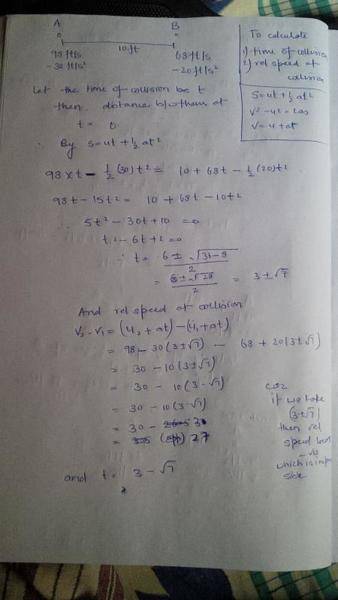 A B
10 ft
98 ft/s 68 ft/s
-30 ft/s² -20 ft/s²
To calculate
1) time of collision
2) rel speed of
collision
S = ut + ½ at²
v² - u² = 2as
v = u + at
Let the time of collision be t
then distance b/w them at
t = 0.
By s = ut + ½ at²
98 × t - ½ (30) t² = 10 + 68t - ½ (20) t²
98t - 15t² = 10 + 68t - 10t²
5t² - 30t + 10 = 0
t² - 6t + 2 = 0
∴ t = 6 ± √36-8 / 2
= 6 ± √28 / 2 = 3 ± √7
And rel speed of collision
V₂ - V₁ = (u₂ + at) - (u₁ + at)
= 98 - 30 (3 ± √7) - 68 + 20 (3 ± √7)
= 30 - 10 (3 ± √7)
= 30 - 10 (3 - √7)
= 30 - 10 (3 - √7)
= 30 - 3
= 27
coz
if we take
(3 + √7)
then rel
speed
which is
and t = 3 - √7